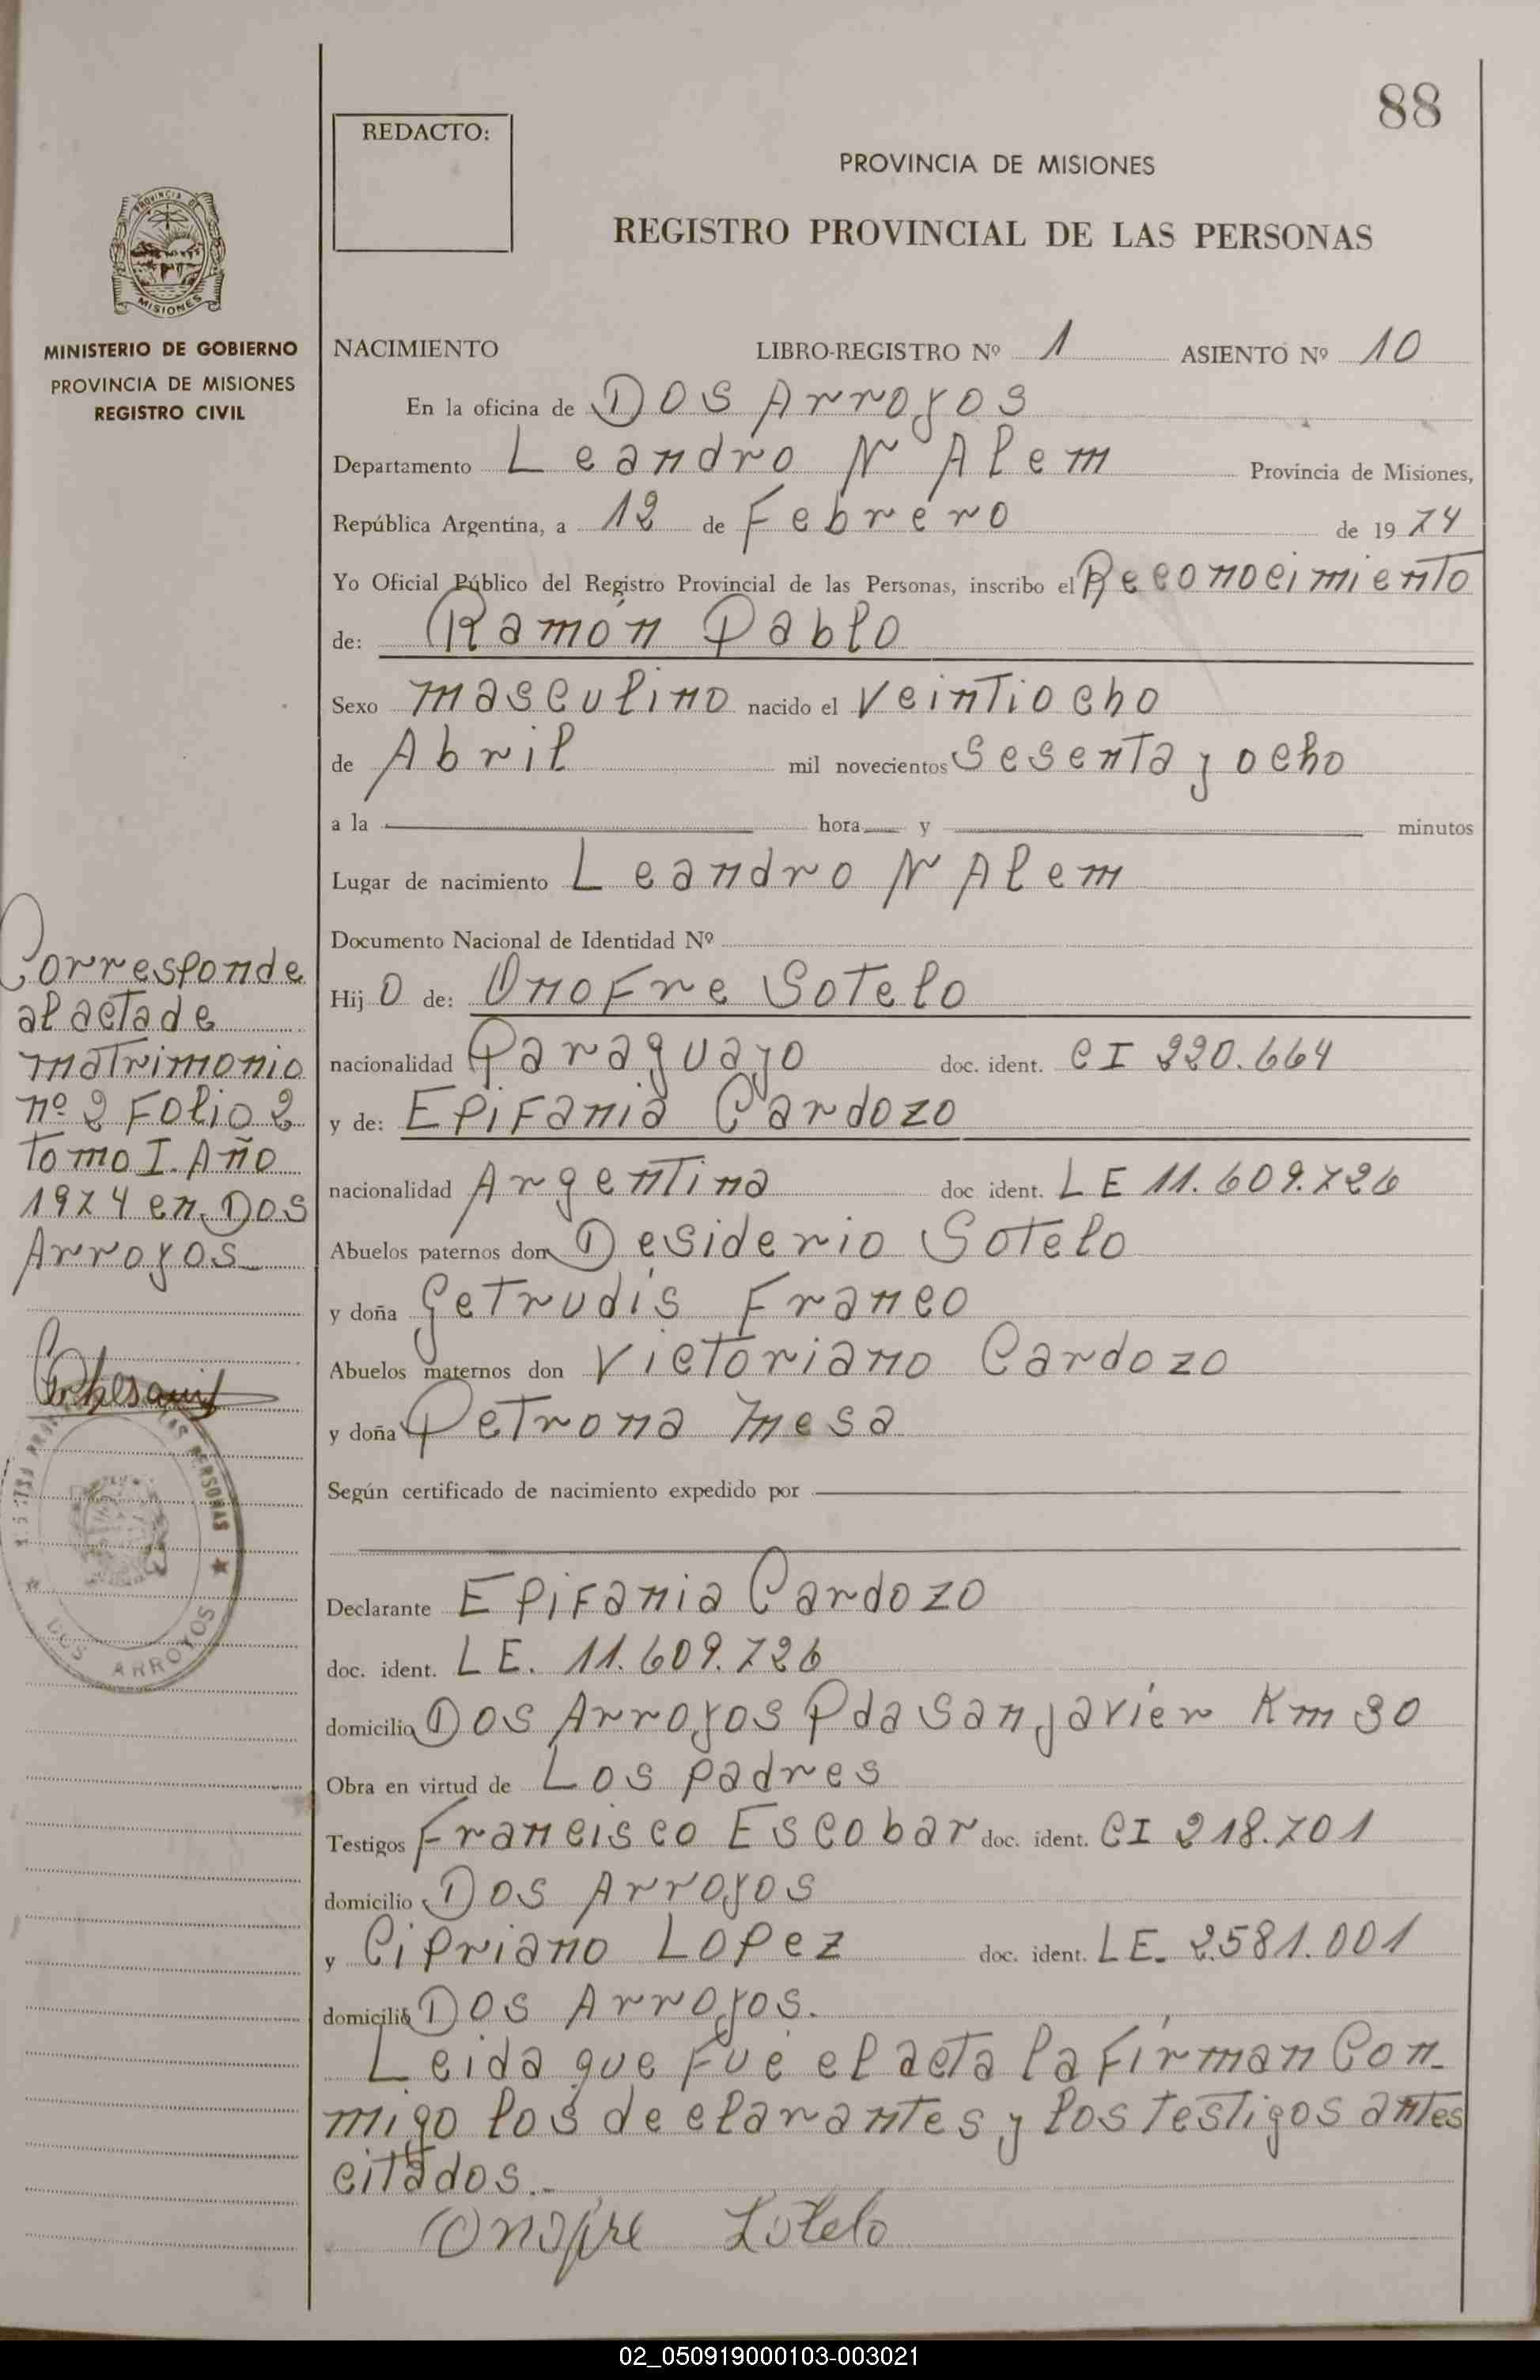 88
REDACTO:
PROVINCIA DE MISIONES
REGISTRO PROVINCIAL DE LAS PERSONAS
PROVINCIA DE
MISIONES
MINISTERIO DE GOBIERNO
PROVINCIA DE MISIONES
REGISTRO CIVIL
NACIMIENTO LIBRO-REGISTRO Nº 1 ASIENTO Nº 10
En la oficina de Dos Arroyos
Departamento Leandro N Alem Provincia de Misiones,
República Argentina, a 12 de Febrero de 1974
Yo Oficial Público del Registro Provincial de las Personas, inscribo el Reconocimiento
de: Ramón Pablo
Sexo masculino nacido el veintiocho
de Abril mil novecientos sesenta y ocho
a la hora y minutos
Lugar de nacimiento Leandro N Alem
Documento Nacional de Identidad Nº
Hijo de: Onofre Sotelo
nacionalidad Paraguayo doc. ident. CI 220.664
y de: Epifania Cardozo
nacionalidad Argentina doc ident. LE 11.609.726
Abuelos paternos don Desiderio Sotelo
y doña Getrudis Franco
Abuelos maternos don Victoriano Cardozo
y doña Petrona Mesa
Según certificado de nacimiento expedido por
Declarante Epifania Cardozo
doc. ident. LE. 11.609.726
domicilio Dos Arroyos Pda San Javier Km 30
Obra en virtud de Los padres
Testigos Francisco Escobar doc. ident. CI 218.701
domicilio Dos Arroyos
y Cipriano Lopez doc. ident. LE. 2.581.001
domicilio Dos Arroyos.
Leida que fue el acta la firman con
migo los declarantes y los testigos antes
citados.-
Onofre Sotelo
Corresponde
al acta de
matrimonio
nº 2 Folio 2
Tomo I. Año
1974 en Dos
Arroyos
PERSONAS
DOS ARROYOS
02_050919000103-003021